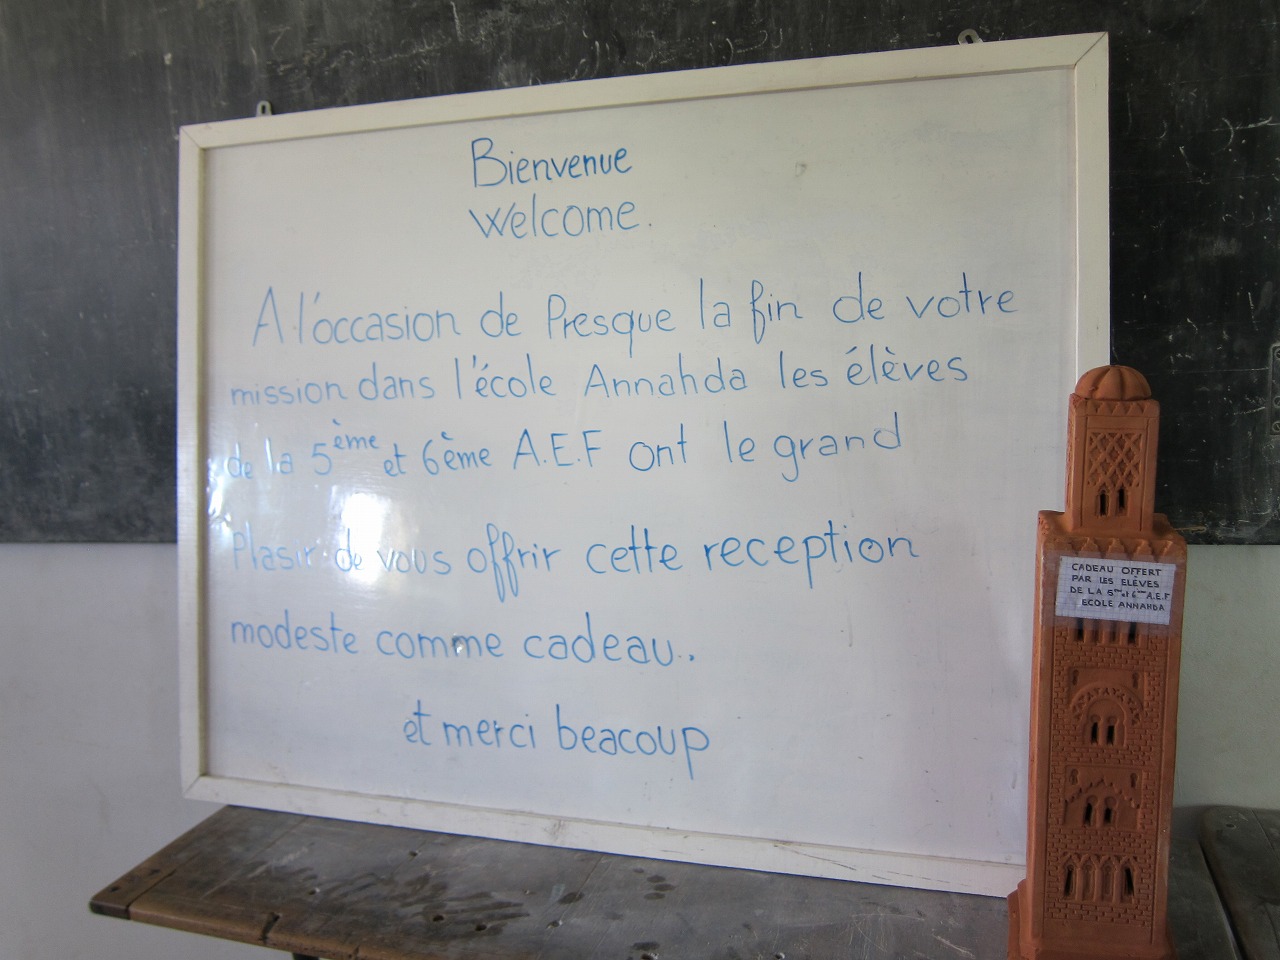 Bienvenue
Welcome.
A l'occasion de Presque la fin de votre
mission dans l'école Annahda les élèves
de la 5ème et 6ème A.E.F ont le grand
Plasir de vous offrir cette reception
modeste comme cadeau..
et merci beacoup
CADEAU OFFERT
PAR LES ELÈVES
DE LA 5ème et 6ème A.E.F
ECOLE ANNAHDA